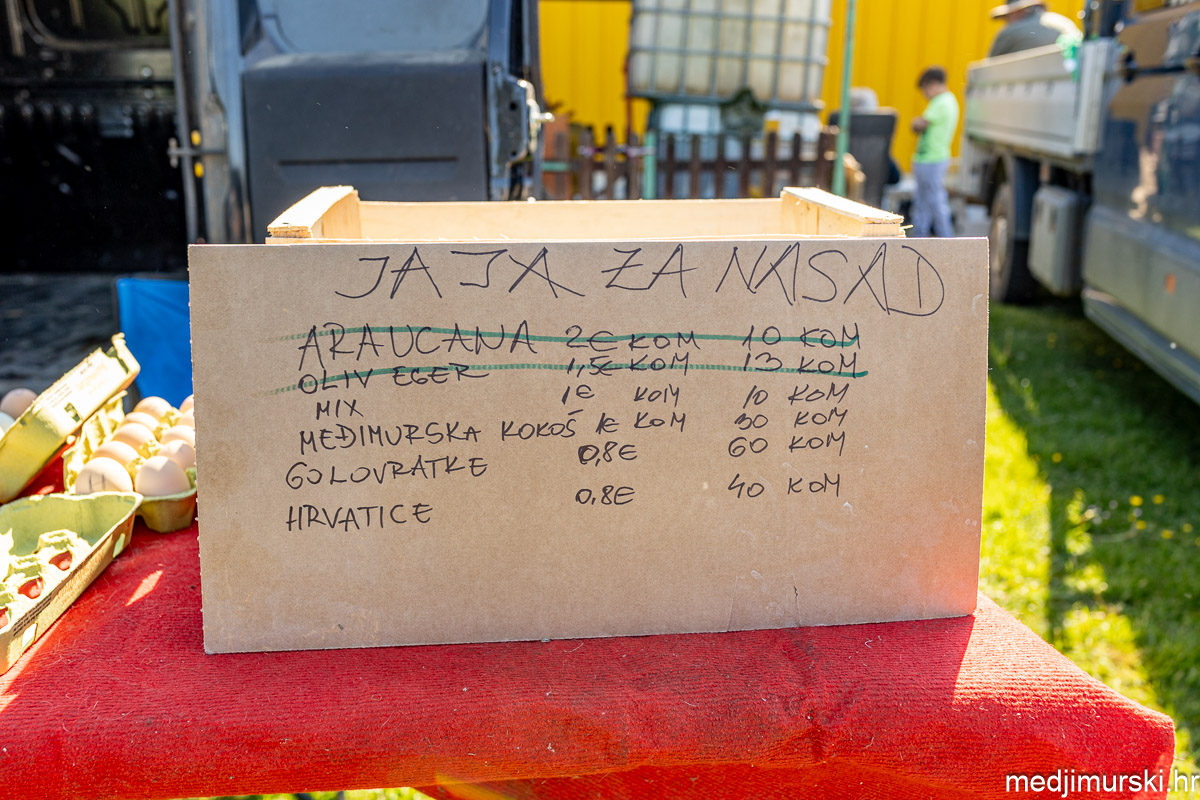 JAJA ZA NASAD
ARAUCANA 2€ KOM 10 KOM
OLIV EGER 1,5€ KOM 13 KOM
MIX 1€ KOM 10 KOM
MEĐIMURSKA KOKOŠ 1€ KOM 30 KOM
GOLOVRATKE 0,8€ 60 KOM
HRVATICE 0,8€ 40 KOM
medjimurski.hr